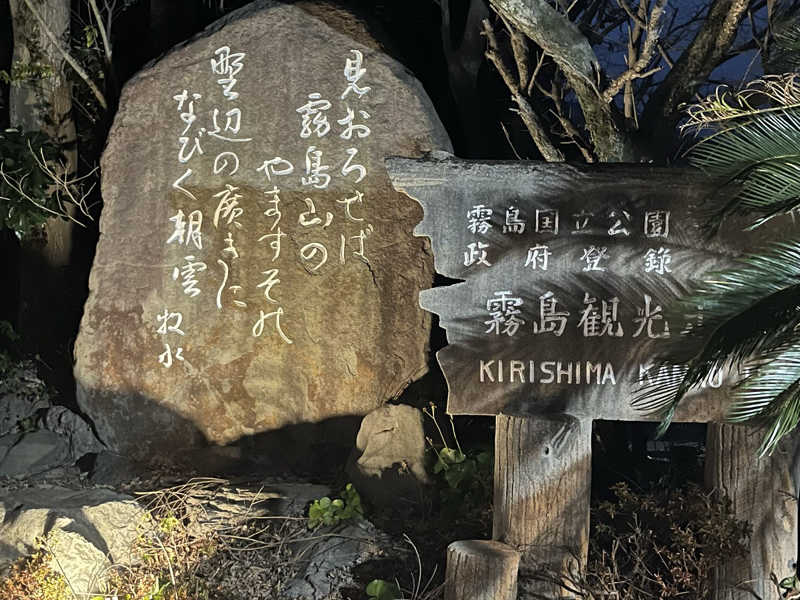 見おろせば
霧島山の
やますその
野辺の廣きに
なびく朝雲
牧水
霧島国立公園
政府登錄
霧島観光
KIRISHIMA KA